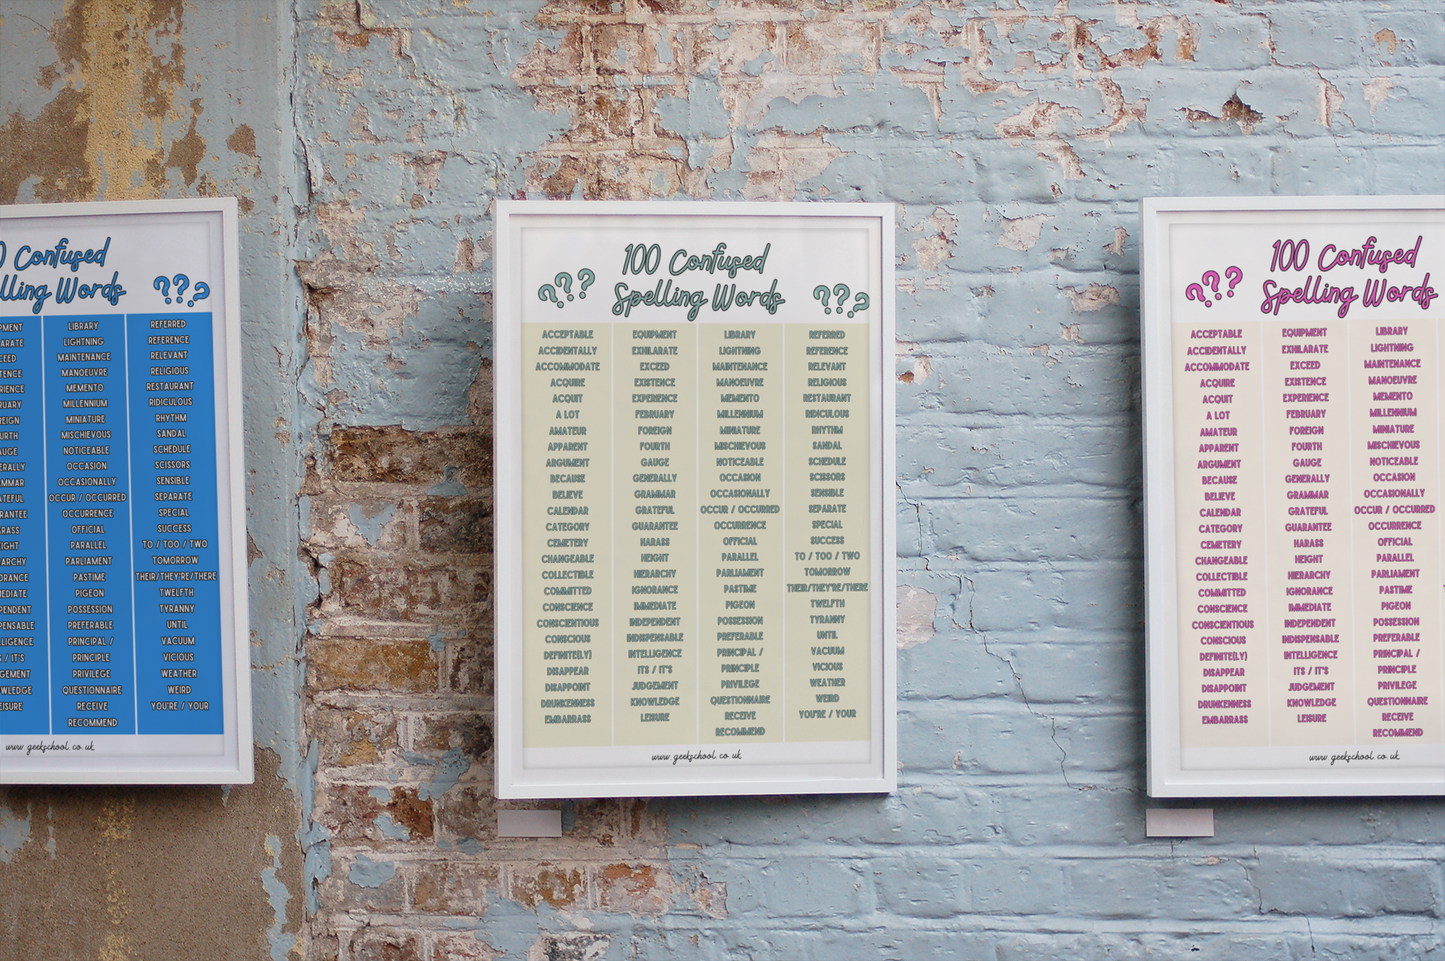 0 Confused
lling Words
PMENT
ARATE
CEED
TENCE
RIENCE
RUARY
EIGN
URTH
AUGE
ERALLY
MMAR
ATEFUL
RANTEE
RASS
IGHT
ARCHY
ORANCE
EDIATE
PENDENT
PENSABLE
LLIGENCE
S / IT'S
GEMENT
WLEDGE
EISURE
LIBRARY
LIGHTNING
MAINTENANCE
MANOEUVRE
MEMENTO
MILLENNIUM
MINIATURE
MISCHIEVOUS
NOTICEABLE
OCCASION
OCCASIONALLY
OCCUR / OCCURRED
OCCURRENCE
OFFICIAL
PARALLEL
PARLIAMENT
PASTIME
PIGEON
POSSESSION
PREFERABLE
PRINCIPAL /
PRINCIPLE
PRIVILEGE
QUESTIONNAIRE
RECEIVE
RECOMMEND
REFERRED
REFERENCE
RELEVANT
RELIGIOUS
RESTAURANT
RIDICULOUS
RHYTHM
SANDAL
SCHEDULE
SCISSORS
SENSIBLE
SEPARATE
SPECIAL
SUCCESS
TO / TOO / TWO
TOMORROW
THEIR/THEY'RE/THERE
TWELFTH
TYRANNY
UNTIL
VACUUM
VICIOUS
WEATHER
WEIRD
YOU'RE / YOUR
www.geekschool.co.uk
100 Confused
Spelling Words
ACCEPTABLE
ACCIDENTALLY
ACCOMMODATE
ACQUIRE
ACQUIT
A LOT
AMATEUR
APPARENT
ARGUMENT
BECAUSE
BELIEVE
CALENDAR
CATEGORY
CEMETERY
CHANGEABLE
COLLECTIBLE
COMMITTED
CONSCIENCE
CONSCIENTIOUS
CONSCIOUS
DEFINITE(LY)
DISAPPEAR
DISAPPOINT
DRUNKENNESS
EMBARRASS
EQUIPMENT
EXHILARATE
EXCEED
EXISTENCE
EXPERIENCE
FEBRUARY
FOREIGN
FOURTH
GAUGE
GENERALLY
GRAMMAR
GRATEFUL
GUARANTEE
HARASS
HEIGHT
HIERARCHY
IGNORANCE
IMMEDIATE
INDEPENDENT
INDISPENSABLE
INTELLIGENCE
ITS / IT'S
JUDGEMENT
KNOWLEDGE
LEISURE
LIBRARY
LIGHTNING
MAINTENANCE
MANOEUVRE
MEMENTO
MILLENNIUM
MINIATURE
MISCHIEVOUS
NOTICEABLE
OCCASION
OCCASIONALLY
OCCUR / OCCURRED
OCCURRENCE
OFFICIAL
PARALLEL
PARLIAMENT
PASTIME
PIGEON
POSSESSION
PREFERABLE
PRINCIPAL /
PRINCIPLE
PRIVILEGE
QUESTIONNAIRE
RECEIVE
RECOMMEND
REFERRED
REFERENCE
RELEVANT
RELIGIOUS
RESTAURANT
RIDICULOUS
RHYTHM
SANDAL
SCHEDULE
SCISSORS
SENSIBLE
SEPARATE
SPECIAL
SUCCESS
TO / TOO / TWO
TOMORROW
THEIR/THEY'RE/THERE
TWELFTH
TYRANNY
UNTIL
VACUUM
VICIOUS
WEATHER
WEIRD
YOU'RE / YOUR
www.geekschool.co.uk
100 Confused
Spelling Words
ACCEPTABLE
ACCIDENTALLY
ACCOMMODATE
ACQUIRE
ACQUIT
A LOT
AMATEUR
APPARENT
ARGUMENT
BECAUSE
BELIEVE
CALENDAR
CATEGORY
CEMETERY
CHANGEABLE
COLLECTIBLE
COMMITTED
CONSCIENCE
CONSCIENTIOUS
CONSCIOUS
DEFINITE(LY)
DISAPPEAR
DISAPPOINT
DRUNKENNESS
EMBARRASS
EQUIPMENT
EXHILARATE
EXCEED
EXISTENCE
EXPERIENCE
FEBRUARY
FOREIGN
FOURTH
GAUGE
GENERALLY
GRAMMAR
GRATEFUL
GUARANTEE
HARASS
HEIGHT
HIERARCHY
IGNORANCE
IMMEDIATE
INDEPENDENT
INDISPENSABLE
INTELLIGENCE
ITS / IT'S
JUDGEMENT
KNOWLEDGE
LEISURE
LIBRARY
LIGHTNING
MAINTENANCE
MANOEUVRE
MEMENTO
MILLENNIUM
MINIATURE
MISCHIEVOUS
NOTICEABLE
OCCASION
OCCASIONALLY
OCCUR / OCCURRED
OCCURRENCE
OFFICIAL
PARALLEL
PARLIAMENT
PASTIME
PIGEON
POSSESSION
PREFERABLE
PRINCIPAL /
PRINCIPLE
PRIVILEGE
QUESTIONNAIRE
RECEIVE
RECOMMEND
www.geekschool.co.uk